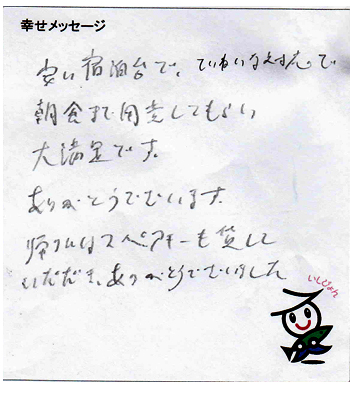 幸せメッセージ
安い宿泊台で、ていねいな対応で
朝食まで用意してもらい
大満足です。
ありがとうございます。
帰りにはスペアキーも貸して
いただき、ありがとうございました
いしぴょん